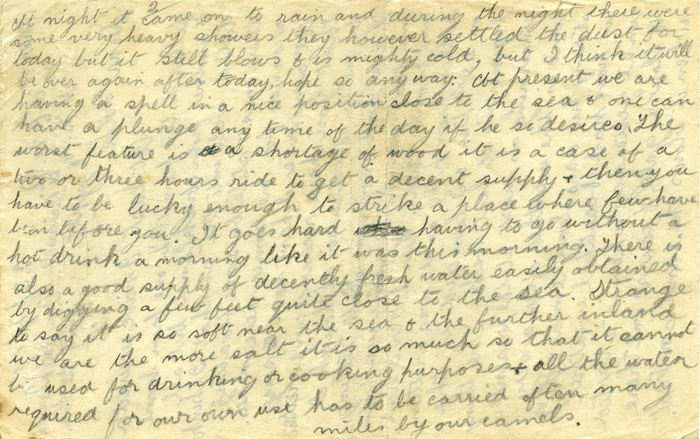 At night it came on to rain and during the night there were
some very heavy showers they however settled the dust for
today but it still blows & is mighty cold, but I think it will
be over again after today, hope so anyway: At present we are
having a spell in a nice position close to the sea & one can
have a plunge any time of the day if he so desires. The
worst feature is a shortage of wood it is a case of a
two or three hours ride to get a decent supply & then you
have to be lucky enough to strike a place where few have
been before you. It goes hard having to go without a
hot drink a morning like it was this morning. There is
also a good supply of decently fresh water easily obtained
by digging a few feet quite close to the sea. Strange
to say it is so soft near the sea & the further inland
we are the more salt it is so much so that it cannot
be used for drinking or cooking purposes & all the water
required for our own use has to be carried often many
miles by our camels.